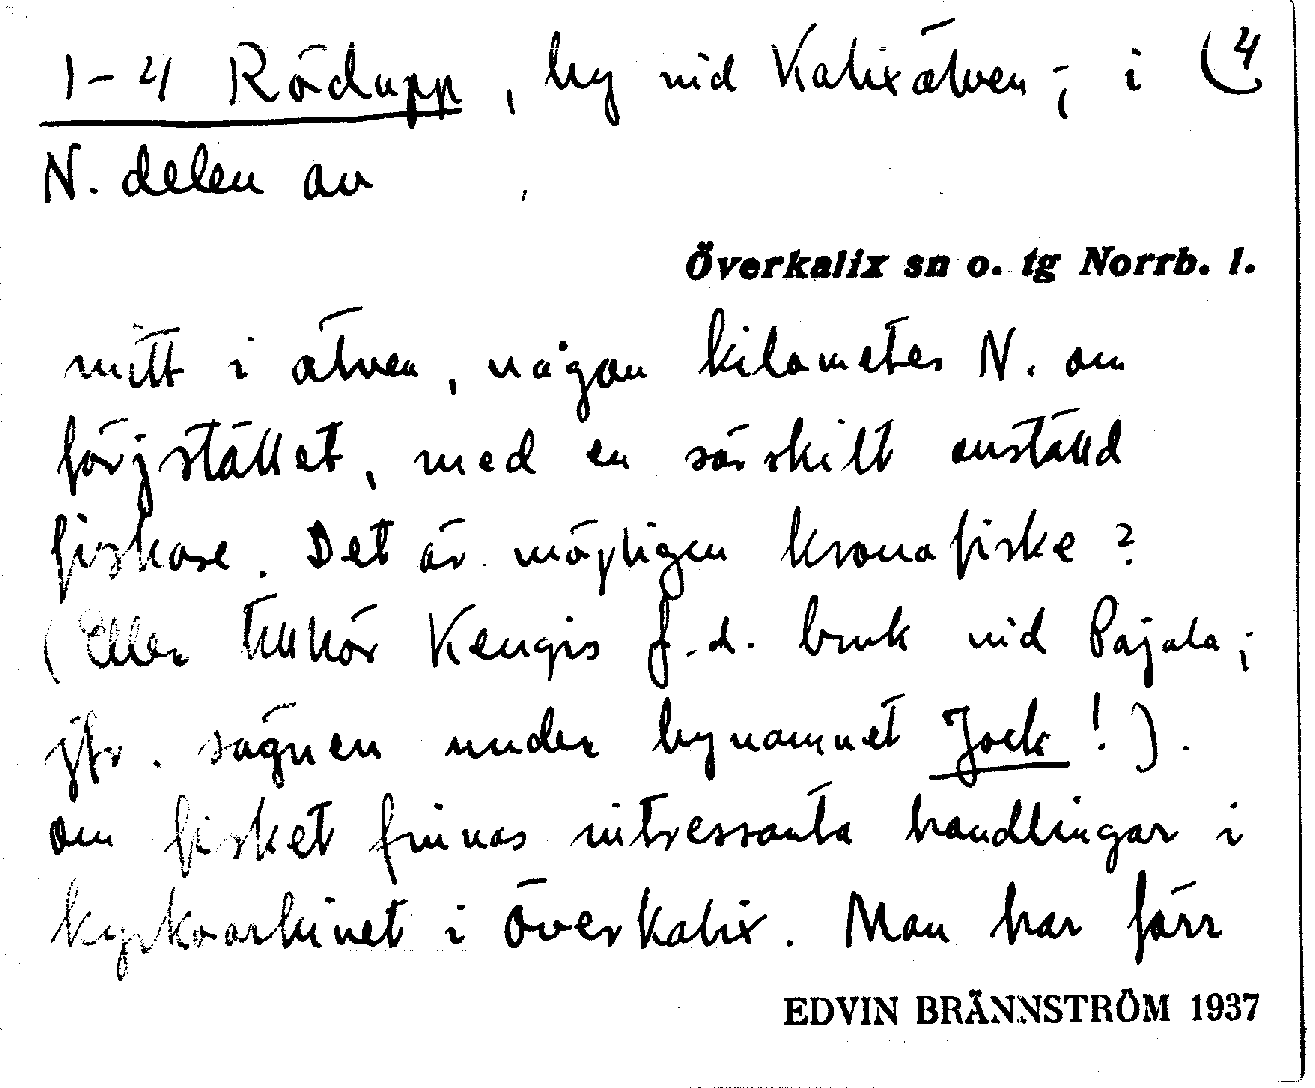 1-4 Rödupp, by vid Kalixälven; i (4
N. delen av
Överkalix sn o. tg Norrb. l.
mitt i älven, någon kilometer N. om
färjstället, med en särskilt anställd
fiskare. Det är möjligen kronofiske?
(Eller tillhör Kengis f.d. bruk vid Pajala;
jfr. sägnen under bynamnet Jock!).
om fisket finnas intressanta handlingar i
kyrkoarkivet i Överkalix. Man har förr
EDVIN BRÄNNSTRÖM 1937